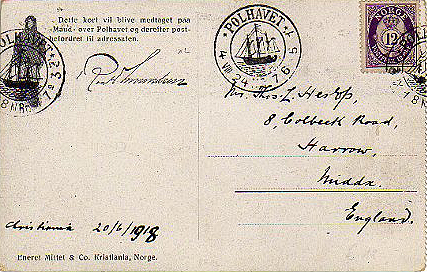 Dette kort vil blive medtaget paa
"Maud" over Polhavet og derefter post-
befordret til adressaten.
POLHAVET
4 VIII 24
7 6 5
NORGE
12
Mr. Thos. L.
8, Colbeck Road,
Harrow,
Middx.
England.
Christiania 20/6/1918
Eneret Mittet & Co. Kristiania, Norge.